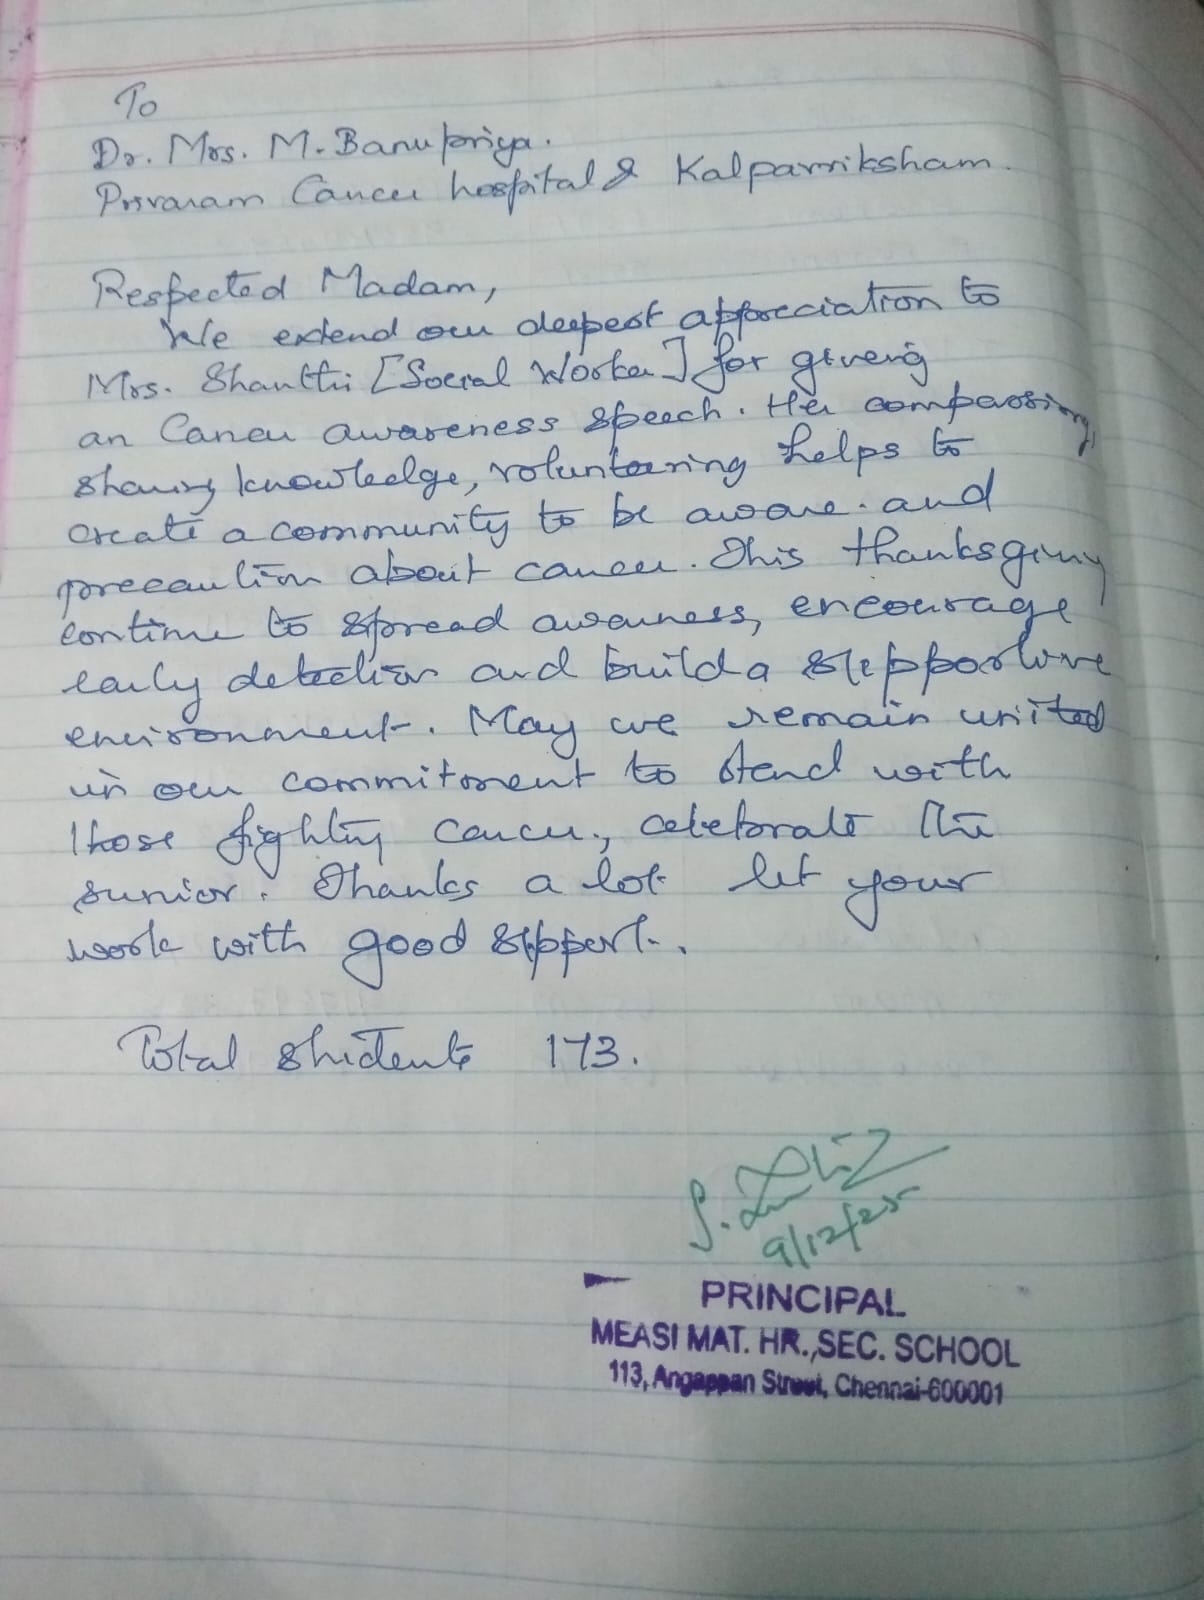 To
Dr. Mrs. M. Banupriya.
Privaram Cancer hospital & Kalpavriksham.
Respected Madam,
We extend our deepest appreciation to
Mrs. Shanthi [Social Worker] for giveng
an Cancer awareness speech. Her compassion,
sharing knowledge, volunteering helps to
create a community to be aware. and
precaution about cancer. This thanksgiving
continue to spread awarness, encourage
early detection and build a supportive
environment. May we remain united
in our commitment to stand with
those fighting cancer, celebrate the
. Thanks a lot let your
work with good support.
Total students 173.
9/12/25
PRINCIPAL
MEASI MAT. HR.,SEC. SCHOOL
113, Angappan Street, Chennai-600001